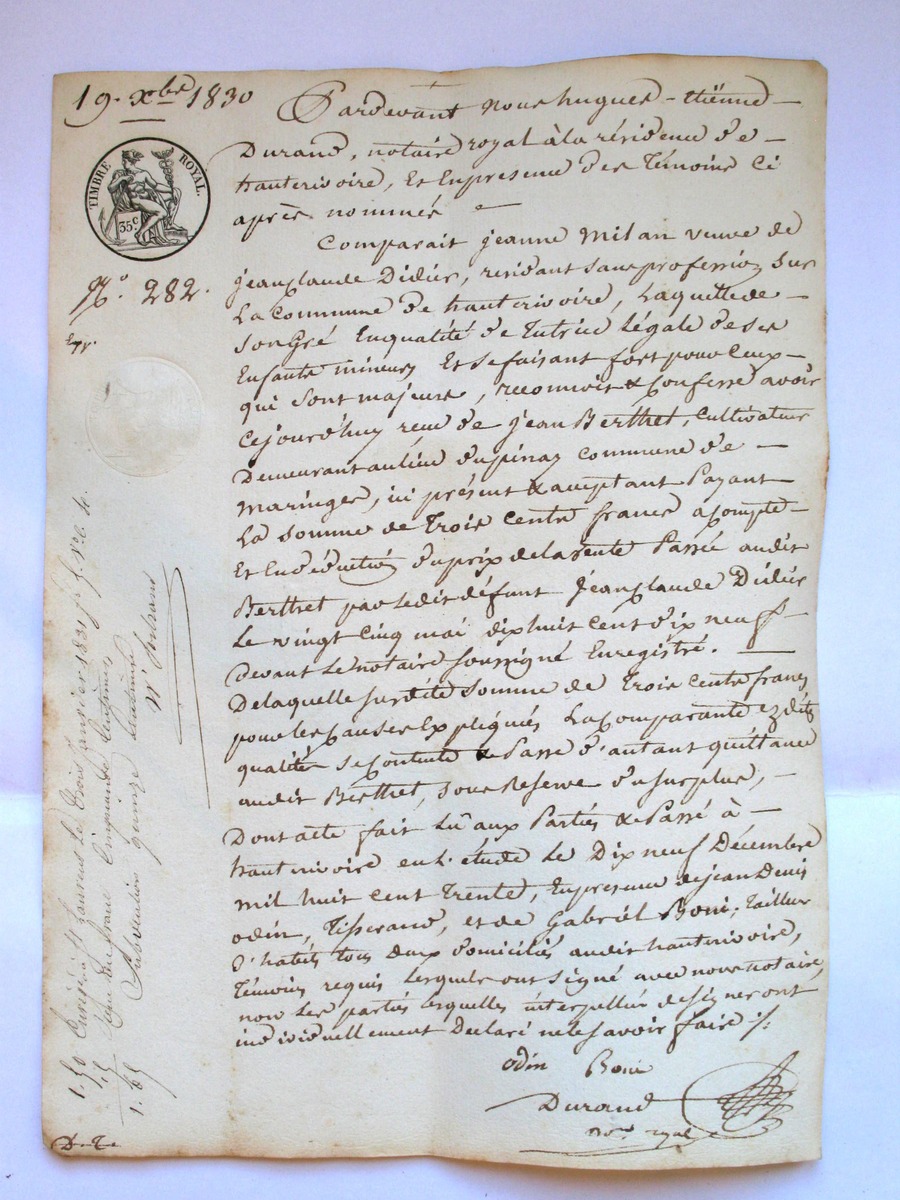 19. Xbre 1830
TIMBRE ROYAL.
35c
N.o 282.
Pardevant nous hugues-Etïenne
Durand, notaire royal à la résidence de
hauterivoire, Et En presence des Témoins Ci
après nommés
Comparait jeanne Milan veuve de
jean Claude Didier, residant sans profession sur
La Commune de hauterivoire, Laquelle de
son Gré En qualité de Tutrice Légale de ses
Enfants mineurs Et se faisant fort pour Ceux
qui sont majeurs, reconnoit & Confesse avoir
Cejourd'huy reçu de jean Berthet, Cultivateur
Demeurant au lieu Dupinay Commune de
Maringes, ici présent & acceptant Payant
La somme de Trois Cents francs à Compte
Et En déduction du prix de la vente Passée audit
Berthet par Ledit défunt jean Claude Didier
Le vingt Cinq mai dix huit cent dix neuf
devant Le notaire soussigné Enregistré.
De laquelle susdite somme de Trois Cents francs
pour les Causes Expliqués La Comparante ezdits
qualités se Contente & Passe d'autant quittance
audit Berthet, sous Reserve du surplus,
Dont acte fait Lû aux Parties & Passé à
hauterivoire en L'étude Le Dix neuf Décembre
mil huit Cent Trente, En presence de jean Denis
odin, Tisserand, et de Gabriël Boni, Tailleur
d'habits tous deux domiciliés audit hauterivoire,
Témoins requis Lesquels ont signé avec nous notaire,
non Les parties Lesquelles interpellées de signer ont
individuellement Declaré ne le savoir faire ./.
odin Boni
Durand
nore royal
Le Trois janvier 1831
Reçu un franc Cinquante Centimes
Subvention quinze Centimes
1. 50
15
1. 65
D. T.